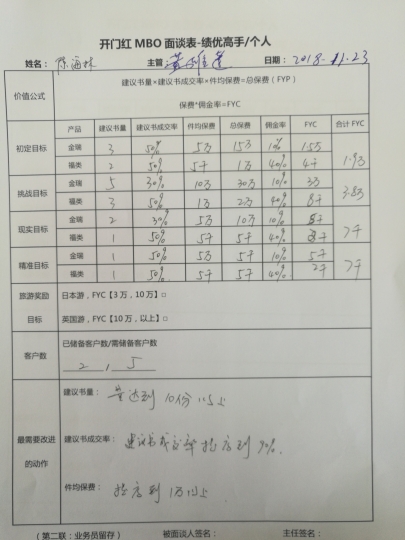 开门红 MBO 面谈表-绩优高手/个人
姓名： 主管： 日期：2018.11.23
价值公式
建议书量×建议书成交率×件均保费=总保费（FYP）
保费*佣金率=FYC
产品 建议书量 建议书成交率 件均保费 总保费 佣金率 FYC 合计 FYC
初定目标 金瑞 3 50% 5万 15万 10% 1.5万 1.9万
福类 2 50% 5千 1万 40% 4千
挑战目标 金瑞 5 30% 10万 30万 10% 3万 3.8万
福类 3 50% 1万 2万 40% 8千
现实目标 金瑞 2 30% 5万 10万 10% 5千 7千
福类 1 50% 5千 5千 40% 2千
精准目标 金瑞 1 50% 5万 5万 10% 5千 7千
福类 1 50% 5千 5千 40% 2千
旅游奖励
目标
日本游，FYC【3 万，10 万】□
英国游，FYC【10 万，以上】□
客户数
已储备客户数/需储备客户数
2 5
最需要改进
的动作
建议书量： 量达到10份以上
建议书成交率： 建议书成交率提高到90%.
件均保费： 提高到1万以上
（第二联：业务员留存） 被面谈人签名： 主任签名：